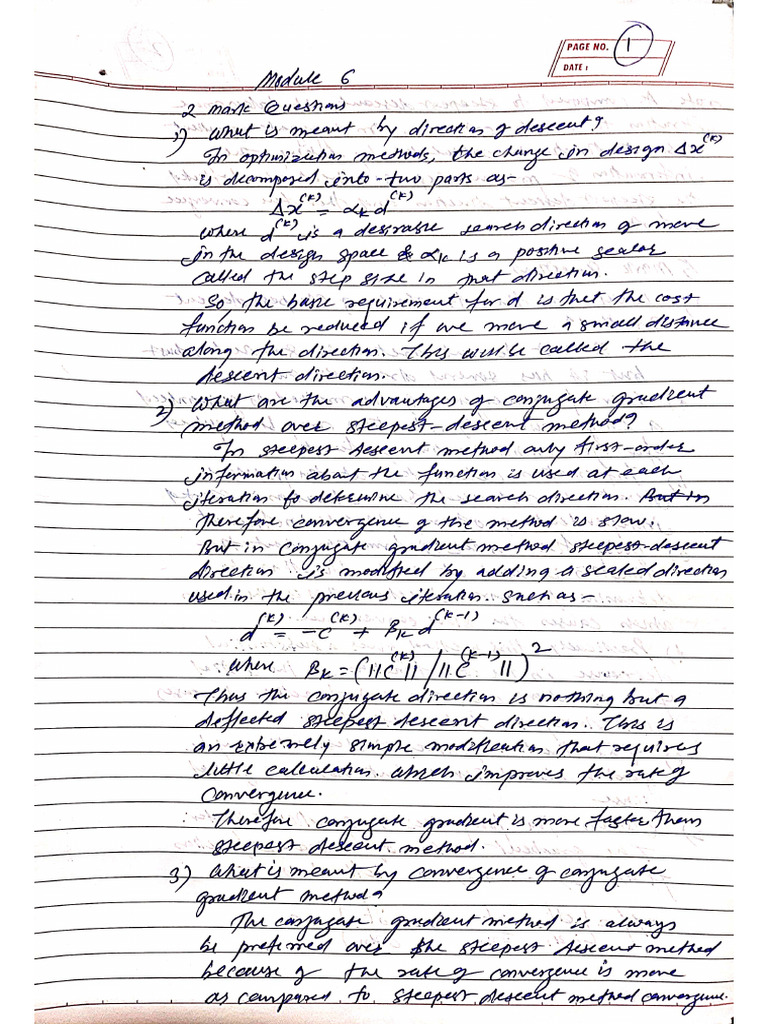 PAGE NO. 1
DATE :
Module 6
2 mark Questions
1) What is meant by direction of descent?
In optimization methods, the change in design Δx^(k)
is decomposed into two parts as-
Δx^(k) = αk d^(k)
where d^(k) is a desirable search direction of move
in the design space & αk is a positive scalar
called the step size in that direction.
So the basic requirement for d is that the cost
function be reduced if we move a small distance
along the direction. This will be called the
descent direction.
2) What are the advantages of conjugate gradient
method over steepest-descent method?
In steepest descent method only first-order
information about the function is used at each
iteration to determine the search direction. But in
therefore convergence of the method is slow.
But in conjugate gradient method steepest-descent
direction is modified by adding a scaled direction
used in the previous iteration. Such as-
d^(k) = -c^(k) + βk d^(k-1)
where βk = (||c^(k)|| / ||c^(k-1)||)^2
Thus the conjugate direction is nothing but a
deflected steepest descent direction. This is
an extremely simple modification that requires
little calculation. which improves the rate of
convergence.
Therefore conjugate gradient is more faster than
steepest descent method.
3) What is meant by convergence of conjugate
gradient method?
The conjugate gradient method is always
be preferred over the steepest descent method
because of the rate of convergence is more
as compared to steepest descent method convergence.